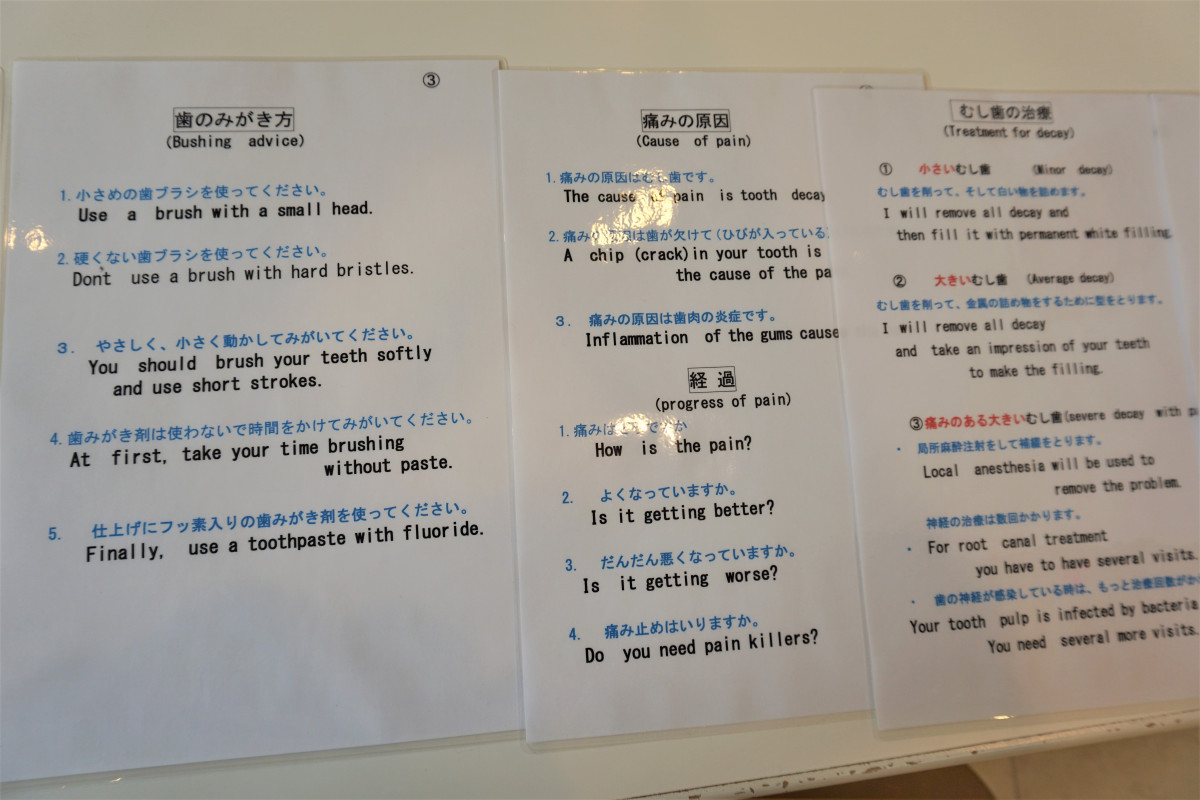 ③
歯のみがき方
(Bushing advice)
1. 小さめの歯ブラシを使ってください。
Use a brush with a small head.
2. 硬くない歯ブラシを使ってください。
Don't use a brush with hard bristles.
3. やさしく、小さく動かしてみがいてください。
You should brush your teeth softly
and use short strokes.
4. 歯みがき剤は使わないで時間をかけてみがいてください。
At first, take your time brushing
without paste.
5. 仕上げにフッ素入りの歯みがき剤を使ってください。
Finally, use a toothpaste with fluoride.
痛みの原因
(Cause of pain)
1. 痛みの原因はむし歯です。
The cause pain is tooth decay
2. 痛み は歯が欠けて(ひびが入っている
A chip (crack) in your tooth is
the cause of the pa
3. 痛みの原因は歯肉の炎症です。
Inflammation of the gums cause
経過
(progress of pain)
1. 痛みは か
How is the pain?
2. よくなっていますか。
Is it getting better?
3. だんだん悪くなっていますか。
Is it getting worse?
4. 痛み止めはいりますか。
Do you need pain killers?
むし歯の治療
(Treatment for decay)
① 小さいむし歯 (Minor decay)
むし歯を削って、そして白い物を詰めます。
I will remove all decay and
then fill it with permanent white filling.
② 大きいむし歯 (Average decay)
むし歯を削って、金属の詰め物をするために型をとります。
I will remove all decay
and take an impression of your teeth
to make the filling.
③痛みのある大きいむし歯(severe decay with p
・ 局所麻酔注射をして補綴をとります。
Local anesthesia will be used to
remove the problem.
神経の治療は数回かかります。
・ For root canal treatment
you have to have several visits.
・ 歯の神経が感染している時は、もっと治療回数がか
Your tooth pulp is infected by bacteria
You need several more visits.